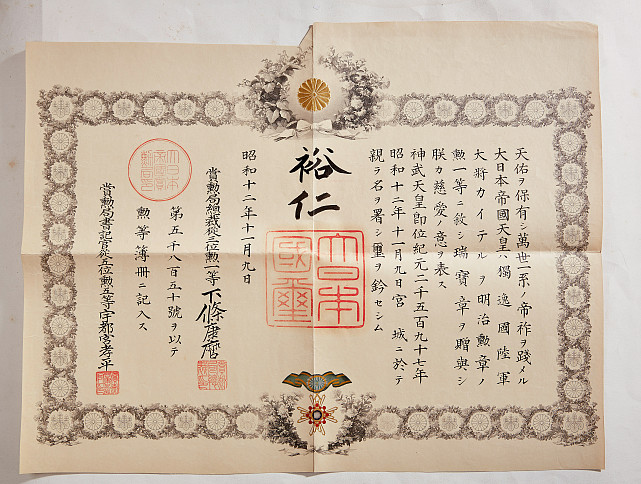 天佑ヲ保有シ萬世一系ノ帝祚ヲ踐メル
大日本帝國天皇ハ獨逸國陸軍
大將カイテルヲ明治勲章ノ
勲一等ニ敘シ瑞寶章ヲ贈與シ
朕カ慈愛ノ意ヲ表ス
神武天皇即位紀元二千五百九十七年
昭和十二年十一月九日宮城ニ於テ
親ラ名ヲ署シ璽ヲ鈐セシム
裕仁
大日本國璽
昭和十二年十一月九日
賞勲局總裁從三位勲一等下條康麿
第五千八百五十號ヲ以テ
勲等簿册ニ記入ス
賞勲局書記官從五位勲五等宇都宮孝平